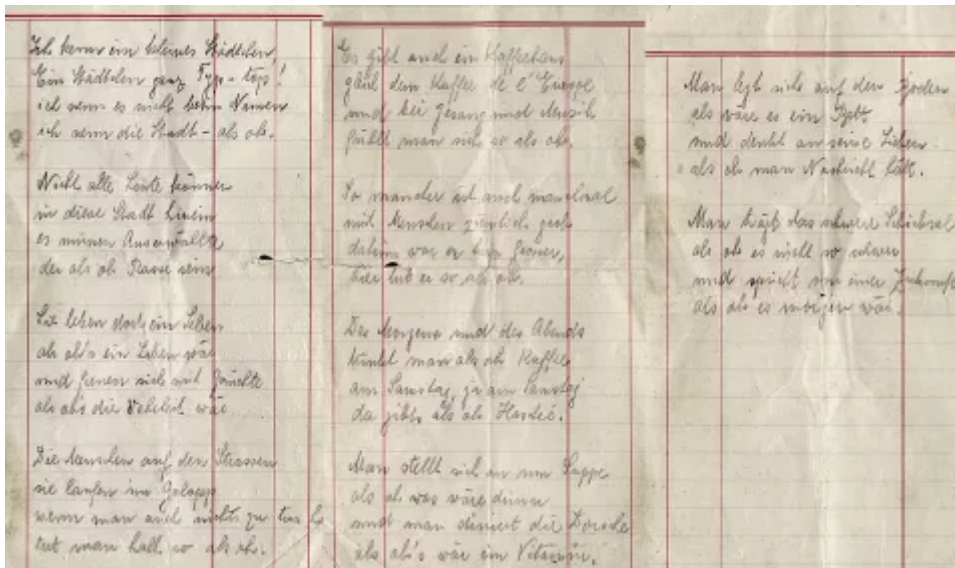 Ich kenn ein kleines Städtchen,
Ein Städtchen ganz Tip-top!
ich nenn es nicht beim Namen
ich nenn die Stadt - als ob.
Nicht alle Leute können
in diese Stadt hinein
es müssen Auserwählte
der als ob Rasse sein
Sie leben dort ein Leben
als ob's ein Leben wär
und freuen sich mit Gerüchte
als ob's die Wahrheit wär
Die Menschen auf den Strassen
sie laufen im Galopp
wenn man auch nichts zu tun
tut man halt so als ob.
Es gibt auch ein Kaffeehaus
gleich dem Kaffee de l'Europe
und bei Gesang und Musik
fühlt man sich so als ob.
So mancher ist auch manchmal
mit Menschen ziemlich grob
daheim war er kein Grosser,
hier tut er so als ob.
Des Morgens und des Abends
trinkt man als ob Kaffee
am Samstag, ja am Samstag
da gibts als ob Haché.
Man stellt sich an um Suppe
als ob was wäre drinnen
und man die Dorsche
als ob's wär ein Vitamin.
Man legt sich auf den Boden
als wäre es ein Bett
und denkt an seine Lieben
als ob man Nachricht hätt.
Man trägt das schwere Schicksal
als ob es nicht so schwer
und spricht von einer Zukunft
als ob es morgen wär.